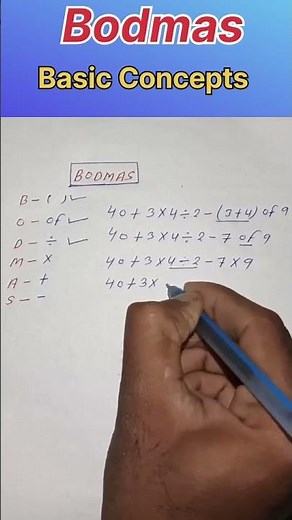 Bodmas
Basic Concepts
BODMAS
B - ( ) ✓
O - of ✓
D - ÷ ✓
M - ×
A - +
S - -
40+3×4÷2-(3+4) of 9
40+3×4÷2-7 of 9
40+3×4÷2-7×9
40+3×